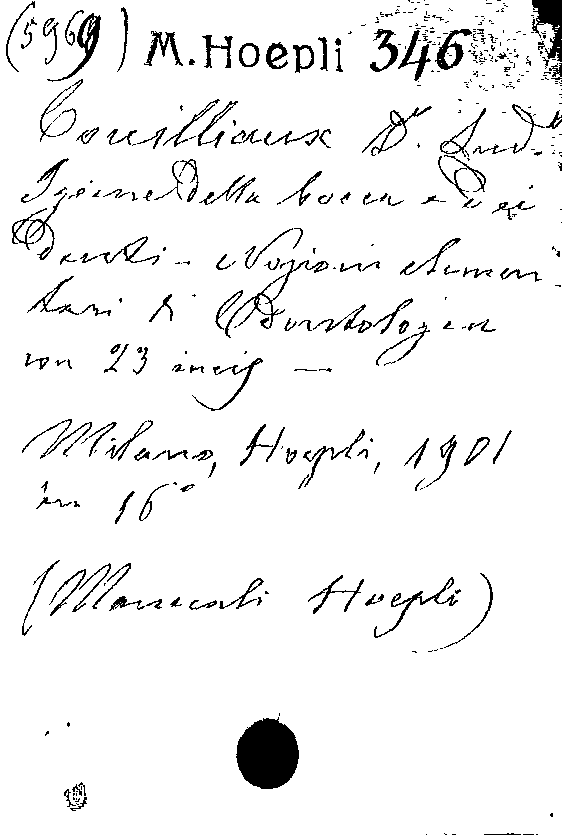 (5969) M. Hoepli 346
Coulliaux Dr. Lud.
Igiene della bocca e dei
Denti - Nozioni elemen-
tari di Odontologia
con 23 incis —
Milano, Hoepli, 1901
in 16°
(Manuali Hoepli)